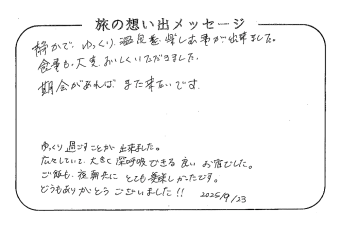 旅の想い出メッセージ
静かで、ゆっくり温泉を楽しむ事が出来ました。
食事も、大変おいしくいただきました。
機会があれば、また来たいです。
ゆっくり過ごすことが出来ました。
広々としていて、大きく深呼吸できる良いお宿でした。
ご飯も、夜朝共にとても美味しかったです。
どうもありがとうございました!! 2025/9/23